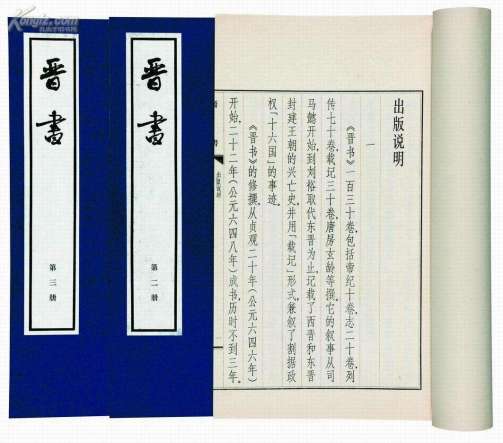 Kongfz.com
孔夫子旧书网
出版说明
一
《晋书》一百三十卷,包括帝纪十卷,志二十卷,列
传七十卷,载记三十卷,唐房玄龄等撰。它的叙事从司
马懿开始,到刘裕取代东晋为止,记载了西晋和东晋
封建王朝的兴亡史,并用「载记」形式,兼叙了割据政
权「十六国」的事迹。
《晋书》的修撰,从贞观二十年(公元六四六年)
开始,二十二年(公元六四八年)成书,历时不到三年。
出版说明
晋書
第二册
晋書
第三册